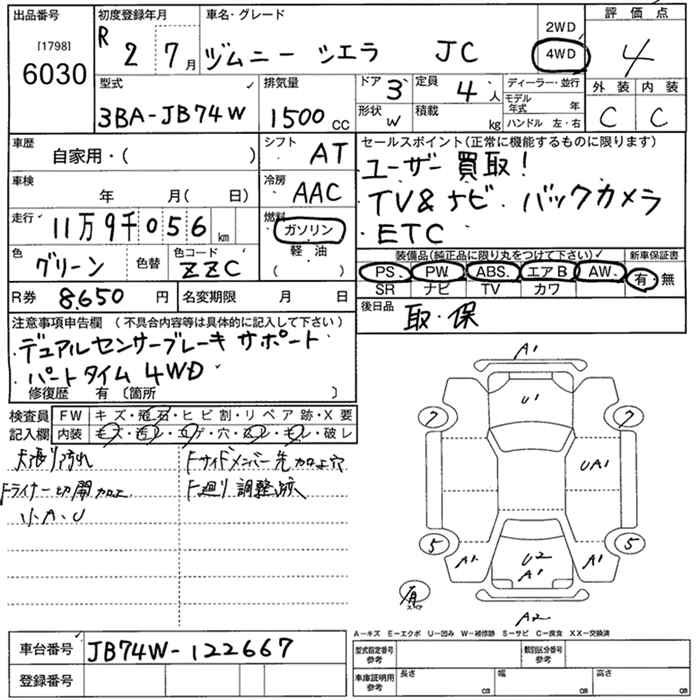 出品番号
[1798]
6030
初度登録年月
R 2 7月
車名・グレード
ジムニー シエラ JC
2WD
4WD
評価点
4
型式
3BA-JB74W
排気量
1500 cc
ドア 3
定員 4人
形状 W
積載 kg
ディーラー・並行
モデル年式 年
ハンドル 左・右
外装 内装
C C
車歴
自家用・( )
シフト
AT
車検
年 月( 日)
冷房
AAC
走行
11万9千056 km
燃料
ガソリン
軽油
( )
色
グリーン
色替
色コード
ZZC
R券 8.650 円
名変期限 月 日
セールスポイント(正常に機能するものに限ります)
・ユーザー買取!
・TV&ナビ・バックカメラ
・ETC
装備品(純正品に限り丸をつけて下さい)
新車保証書
PS. PW. ABS. エアB AW.
SR ナビ TV カワ
有・無
後日品
取・保
注意事項申告欄 (不具合内容等は具体的に記入して下さい)
・デュアルセンサーブレーキサポート
・パートタイム4WD
修復歴 有 〔箇所 〕
検査員記入欄
FW キズ・飛石・ヒビ割・リペア跡・X要
内装 キズ・汚レ・コゲ・穴・スレ・モレ・破レ
天張り汚れ
Fライナー切開加工
小A、U
Fサイドメンバー先加工穴
F廻り調整跡
A1
U1
7
7
UA1
5
5
A1
U2
A1
A1
A2
有
A-キズ E-エクボ U-凹み W-補修跡 S-サビ C-腐食 XX-交換済
車台番号
JB74W-122667
登録番号
型式指定番号
参考
類別区分番号
参考
車庫証明用
参考
長さ cm
幅 cm
高さ cm